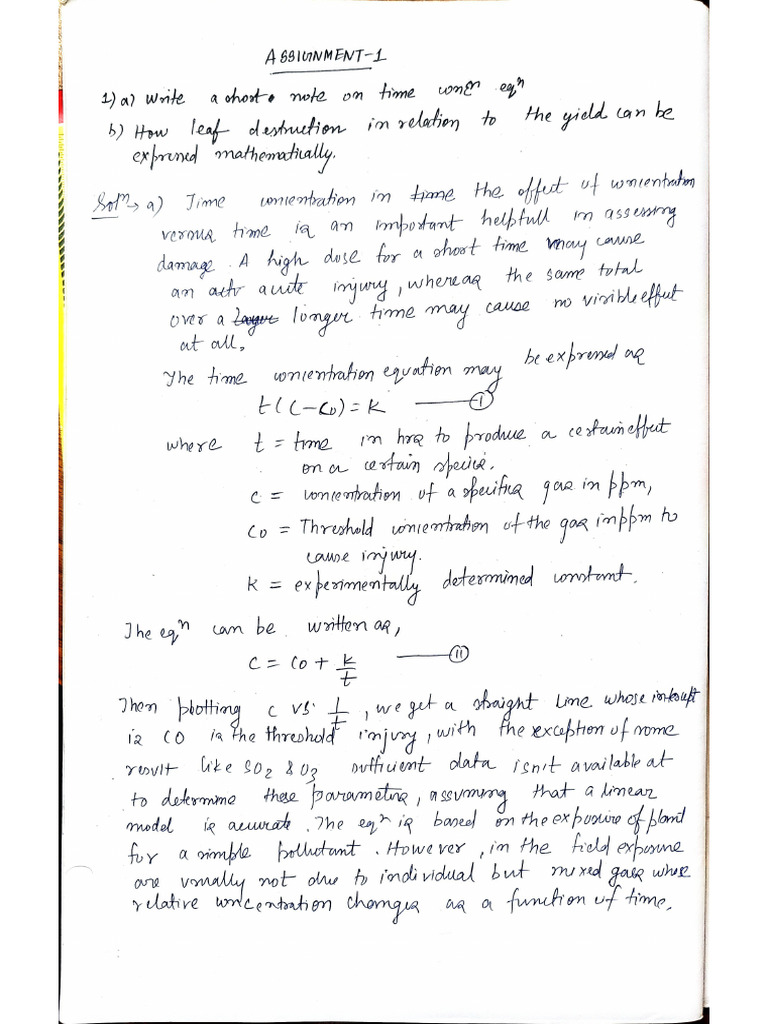 ASSIGNMENT-1
1) a) Write a short note on time concn eqn
b) How leaf destruction in relation to the yield can be
expressed mathematically.
Soln → a) Time concentration in time the effect of concentration
versus time is an important helpfull in assessing
damage. A high dose for a short time may cause
an actv acute injury, whereas the same total
over a longer longer time may cause no visible effect
at all.
The time concentration equation may be expressed as
t(C-C0) = K —— (I)
where t = time in hrs to produce a certain effect
on a certain specie.
C = concentration of a specific gas in ppm,
C0 = Threshold concentration of the gas in ppm to
cause injury.
K = experimentally determined constant.
The eqn can be written as,
C = C0 + K/t —— (II)
Then plotting C vs. 1/t, we get a straight line whose intercept
is C0 is the threshold injury, with the exception of some
result like SO2 & O3 sufficient data isn't available at
to determine these parameters, assuming that a linear
model is accurate. The eqn is based on the exposure of plant
for a simple pollutant. However, in the field exposure
are usually not due to individual but mixed gases whose
relative concentration changes as a function of time.